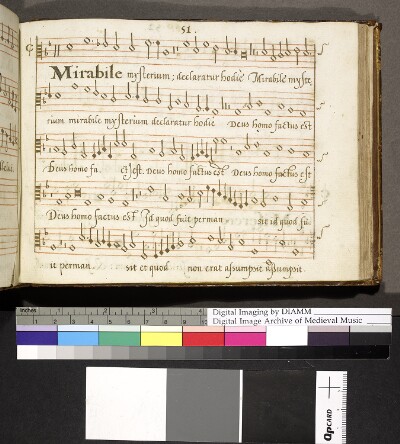 51.
Mirabile mysterium; declaratur hodie Mirabile myste
rium mirabile mysterium declaratur hodie Deus homo factus est
Deus homo fa. est. Deus homo factus est Deus homo factus est
Deus homo factus est Id quod fuit perman sit id quod fu
it perman. sit et quod non erat assumpsit assumpsit.
inches
1 2 3
Digital Imaging by DIAMM
Digital Image Archive of Medieval Music
QPCARD